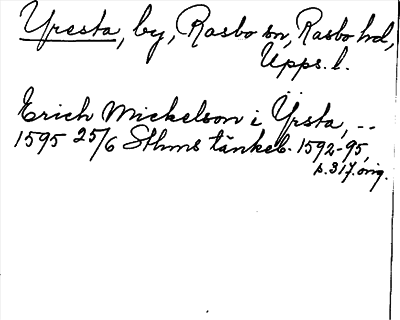 Yresta, by, Rasbo sn, Rasbo hd,
Upps. l.
Erich Mickelson i Yrsta, --
1595 25/6 Sthms tänkeb. 1592-95,
s. 317. orig.